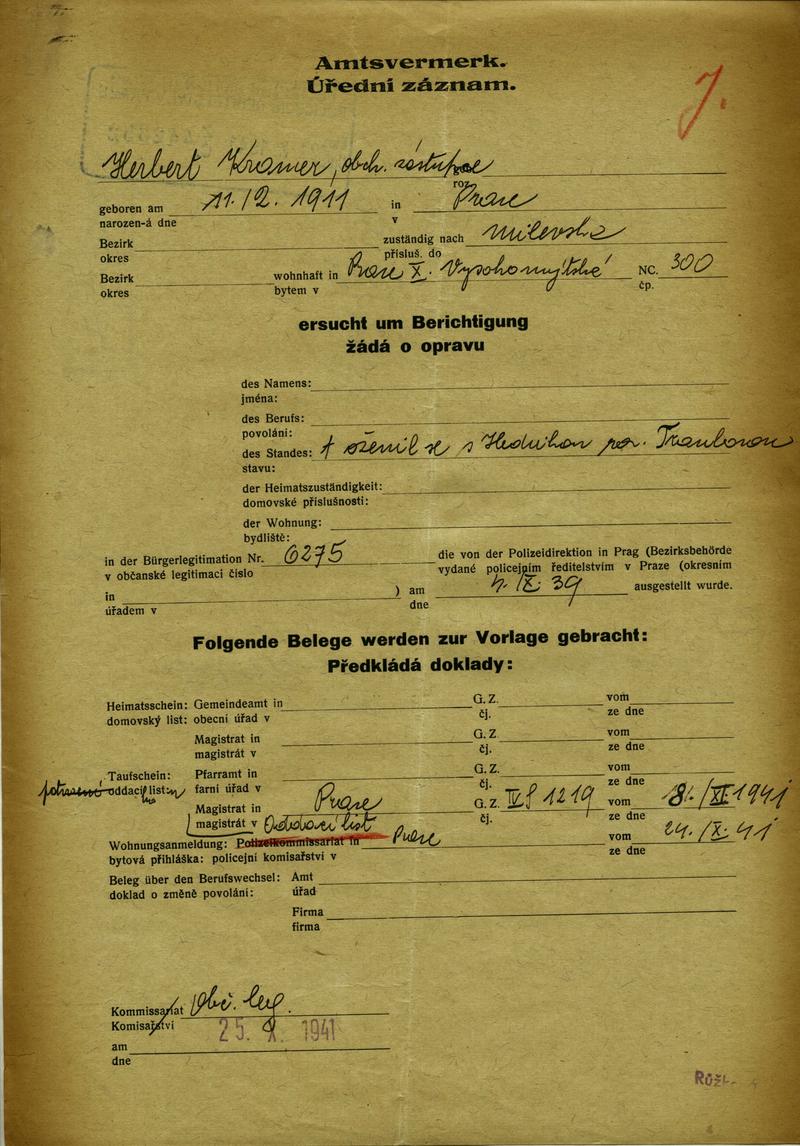 Amtsvermerk.
Úřední záznam.
7.
Herbert Kramer, obch. zástupce
geboren am 11./2. 1911 in roz. Praze
narozen-á dne v
Bezirk zuständig nach Milevsko
okres přísluš. do
Bezirk wohnhaft in Praze X. Vysokomýtská NC. 300
okres bytem v čp.
ersucht um Berichtigung
žádá o opravu
des Namens:
jména:
des Berufs:
povolání:
des Standes: oženil se s Hedvikou
stavu:
der Heimatszuständigkeit:
domovské příslušnosti:
der Wohnung:
bydliště:
in der Bürgerlegitimation Nr. 6275 die von der Polizeidirektion in Prag (Bezirksbehörde
v občanské legitimaci číslo vydané policejním ředitelstvím v Praze (okresním
in ) am IX 39 ausgestellt wurde.
úřadem v dne
Folgende Belege werden zur Vorlage gebracht:
Předkládá doklady:
Heimatsschein: Gemeindeamt in G. Z. vom
domovský list: obecní úřad v čj. ze dne
Magistrat in G. Z vom
magistrát v čj. ze dne
Taufschein: Pfarramt in G. Z. vom
oddací list: farní úřad v čj. ze dne
Magistrat in Praze G. Z. 1219 vom 1941
magistrát v Oddací list čj. ze dne
Wohnungsanmeldung: Polizeikommissariat in Praze vom 24./X. 41
bytová přihláška: policejní komisařství v ze dne
Beleg über den Berufswechsel: Amt
doklad o změně povolání: úřad
Firma
firma
Kommissariat Obč. leg.
Komisařství 25. X. 1941
am
dne